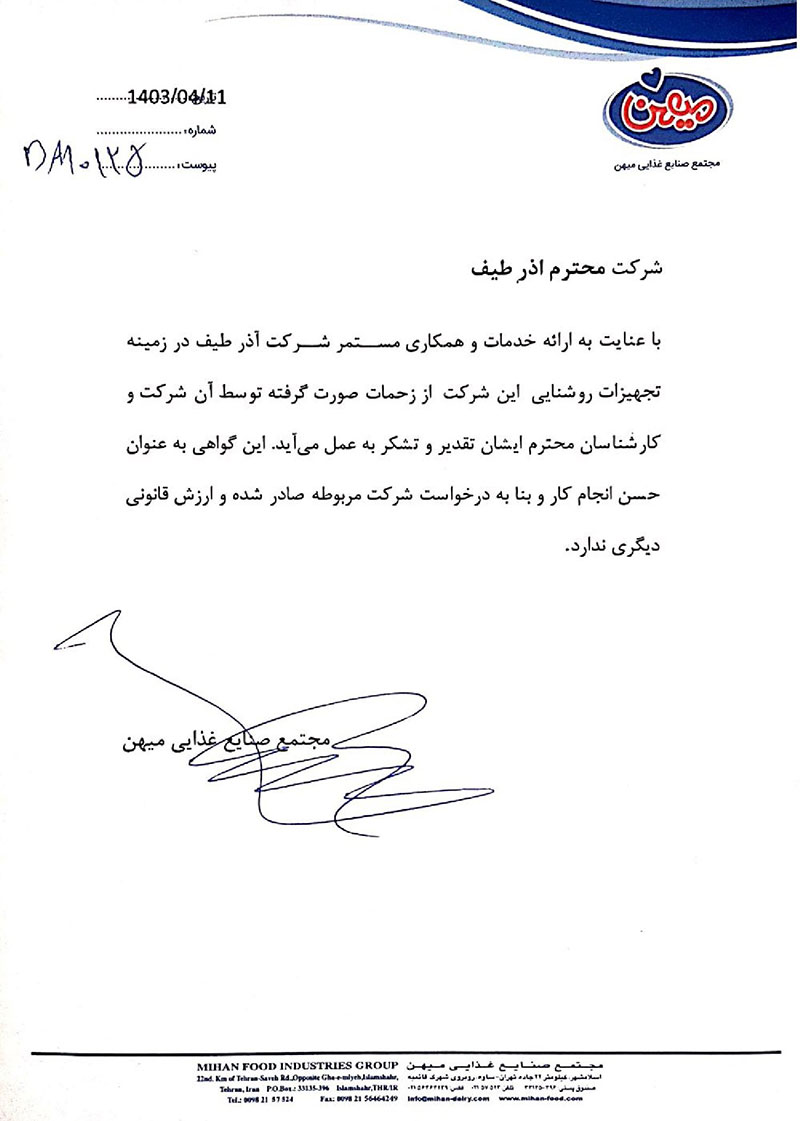 میهن
مجتمع صنایع غذایی میهن
1403/04/11
شماره:
پیوست:
شرکت محترم اذر طیف
با عنایت به ارائه خدمات و همکاری مستمر شرکت آذر طیف در زمینه
تجهیزات روشنایی این شرکت از زحمات صورت گرفته توسط آن شرکت و
کارشناسان محترم ایشان تقدیر و تشکر به عمل می‌آید. این گواهی به عنوان
حسن انجام کار و بنا به درخواست شرکت مربوطه صادر شده و ارزش قانونی
دیگری ندارد.
مجتمع صنایع غذایی میهن
مجتمع صنایع غذایی میهن
اسلامشهر، کیلومتر ۲۲ جاده تهران-ساوه روبروی شهرک قائمیه
صندوق پستی ۳۹۶-۳۳۱۳۵ تلفن ۵۷۵۲۴ ۰۲۱ فکس ۵۶۴۶۴۲۴۹ ۰۲۱
info@mihan-dairy.com www.mihan-food.com
MIHAN FOOD INDUSTRIES GROUP
22nd. Km of Tehran-Saveh Rd.,Opposite Gha-e-miyeh,Islamshahr,
Tehran, Iran P.O.Box.: 33135-396 Islamshahr,THR/IR
Tel.: 0098 21 57 524 Fax: 0098 21 56464249